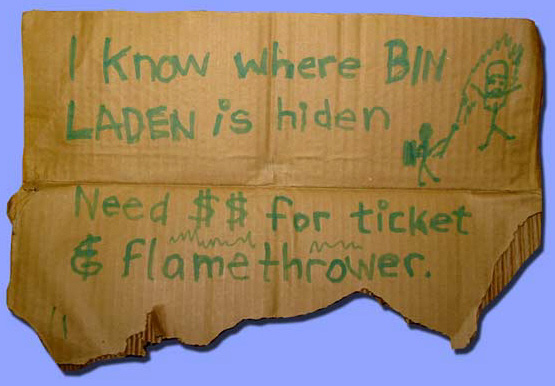 I know where BIN
LADEN is hiden
Need $$ for ticket
& flamethrower.